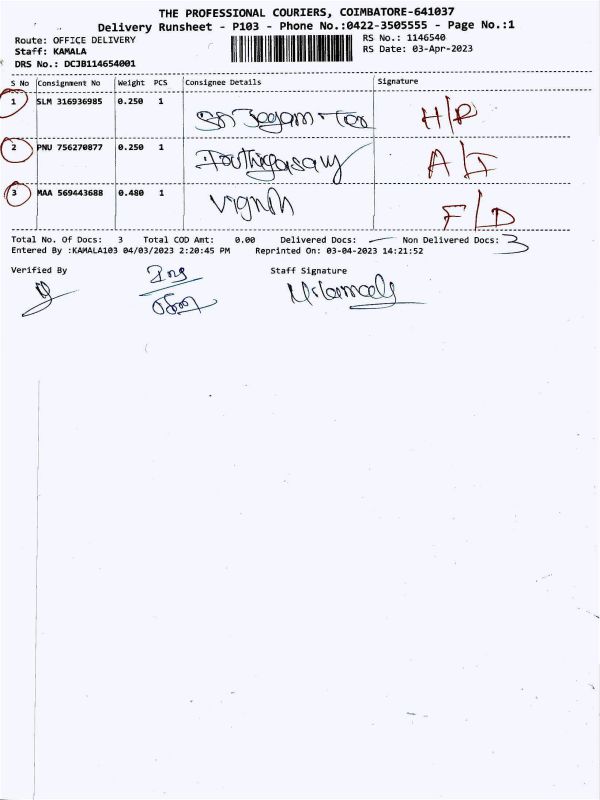 THE PROFESSIONAL COURIERS, COIMBATORE-641037
Delivery Runsheet - P103 - Phone No.:0422-3505555 - Page No.:1
Route: OFFICE DELIVERY
RS No.: 1146540
Staff: KAMALA
RS Date: 03-Apr-2023
DRS No.: DCJB114654001
S No Consignment No Weight PCS Consignee Details Signature
1 SLM 316936985 0.250 1 H/R
2 PNU 756270877 0.250 1 A/I
3 MAA 569443688 0.480 1 F/D
Total No. Of Docs: 3 Total COD Amt: 0.00 Delivered Docs: — Non Delivered Docs: 3
Entered By :KAMALA103 04/03/2023 2:20:45 PM Reprinted On: 03-04-2023 14:21:52
Verified By Staff Signature